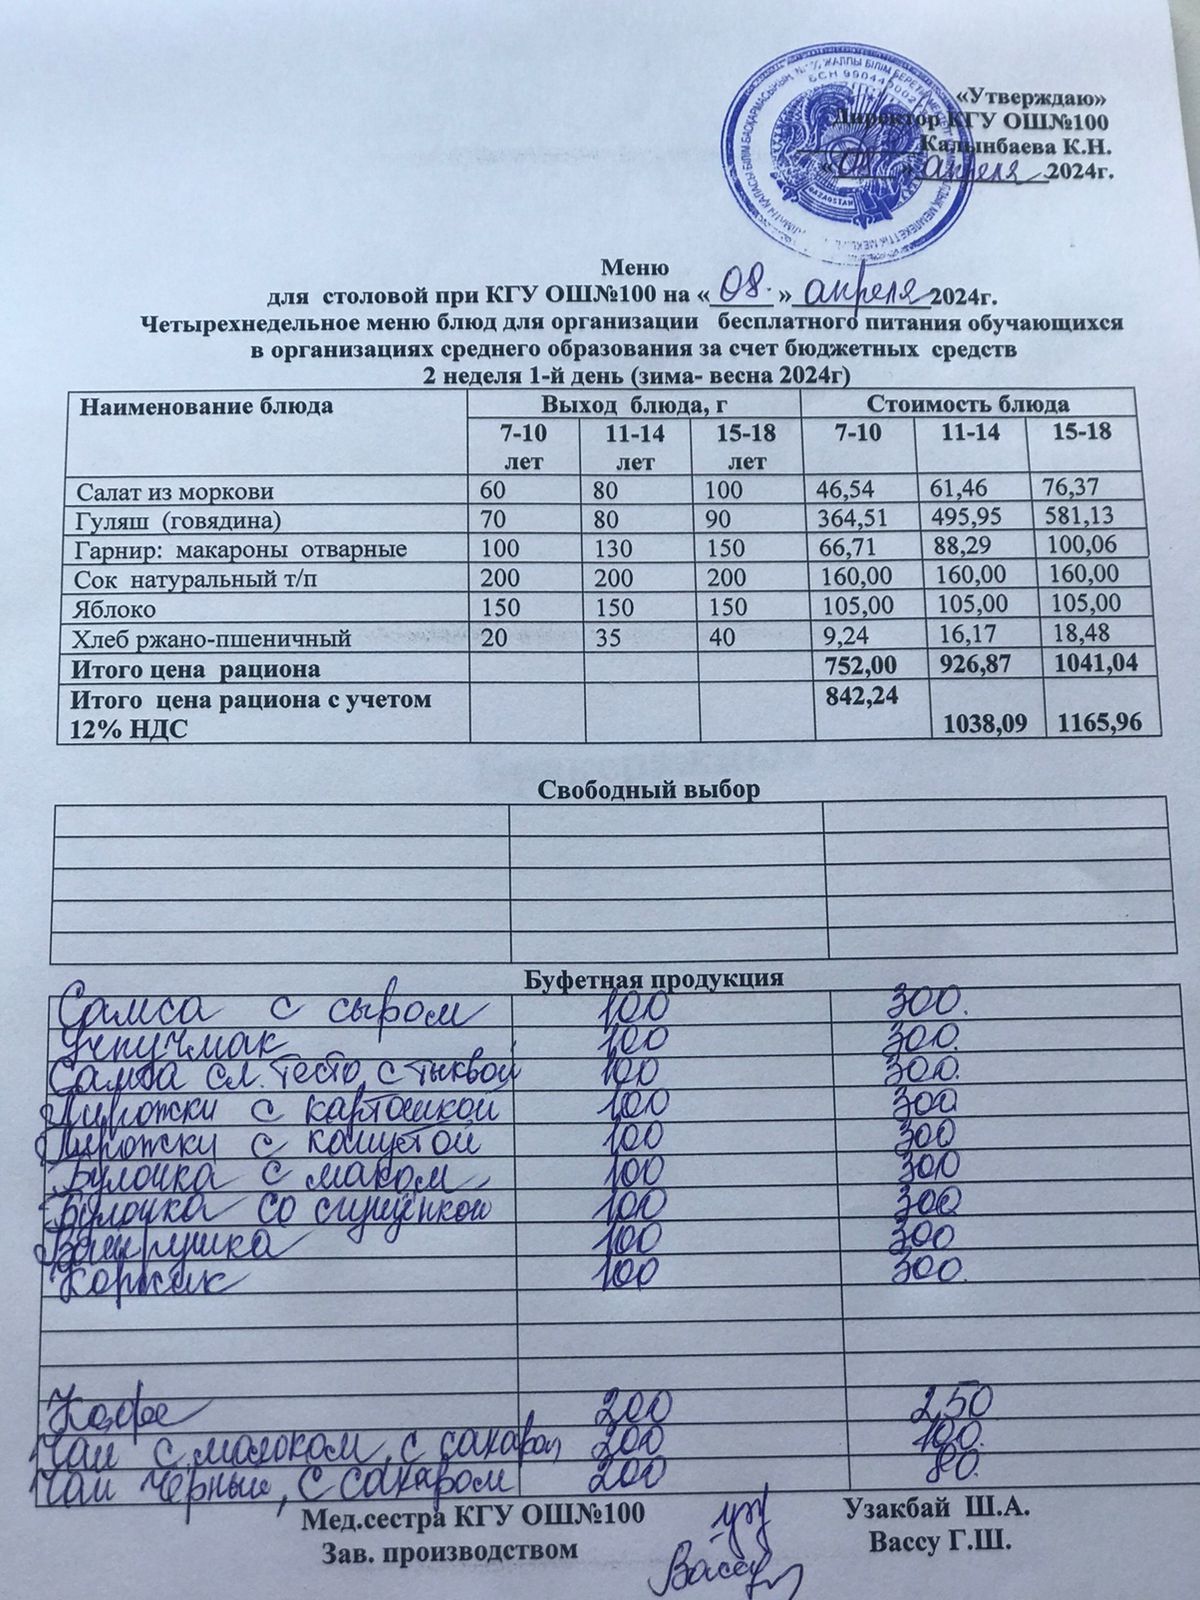 «Утверждаю»
Директор КГУ ОШ№100
Калынбаева К.Н.
«08» апреля 2024г.
KAZAGSTAN
Меню
для столовой при КГУ ОШ№100 на « 08. » апреля 2024г.
Четырехнедельное меню блюд для организации бесплатного питания обучающихся
в организациях среднего образования за счет бюджетных средств
2 неделя 1-й день (зима- весна 2024г)
Наименование блюда Выход блюда, г Стоимость блюда
7-10 лет 11-14 лет 15-18 лет 7-10 11-14 15-18
Салат из моркови 60 80 100 46,54 61,46 76,37
Гуляш (говядина) 70 80 90 364,51 495,95 581,13
Гарнир: макароны отварные 100 130 150 66,71 88,29 100,06
Сок натуральный т/п 200 200 200 160,00 160,00 160,00
Яблоко 150 150 150 105,00 105,00 105,00
Хлеб ржано-пшеничный 20 35 40 9,24 16,17 18,48
Итого цена рациона 752,00 926,87 1041,04
Итого цена рациона с учетом 12% НДС 842,24 1038,09 1165,96
Свободный выбор
Буфетная продукция
Самса с сыром 100 300.
Учпучмак 100 300.
Самса сл. тесто с тыквой 100 300.
Пирожки с картошкой 100 300
Пирожки с капустой 100 300
Булочка с маком 100 300
Булочка со сгущенкой 100 300
Ватрушка 100 300
Коржик 100 300.
Кофе 200 250
Чай с молоком, с сахаром 200 100.
Чай черный, с сахаром 200 80.
Мед.сестра КГУ ОШ№100 Узакбай Ш.А.
Зав. производством Вассу Г.Ш.